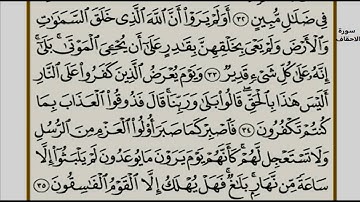 سورة
الاحقاف
فِى ضَلَٰلٍ مُّبِينٍ ٣٢ أَوَلَمْ يَرَوْا۟ أَنَّ ٱللَّهَ ٱلَّذِى خَلَقَ ٱلسَّمَٰوَٰتِ
وَٱلْأَرْضَ وَلَمْ يَعْىَ بِخَلْقِهِنَّ بِقَٰدِرٍ عَلَىٰٓ أَن يُحْـِۧىَ ٱلْمَوْتَىٰ ۚ بَلَىٰٓ
إِنَّهُۥ عَلَىٰ كُلِّ شَىْءٍ قَدِيرٌ ٣٣ وَيَوْمَ يُعْرَضُ ٱلَّذِينَ كَفَرُوا۟ عَلَى ٱلنَّارِ
أَلَيْسَ هَٰذَا بِٱلْحَقِّ ۖ قَالُوا۟ بَلَىٰ وَرَبِّنَا ۚ قَالَ فَذُوقُوا۟ ٱلْعَذَابَ بِمَا
كُنتُمْ تَكْفُرُونَ ٣٤ فَٱصْبِرْ كَمَا صَبَرَ أُو۟لُوا۟ ٱلْعَزْمِ مِنَ ٱلرُّسُلِ
وَلَا تَسْتَعْجِل لَّهُمْ ۚ كَأَنَّهُمْ يَوْمَ يَرَوْنَ مَا يُوعَدُونَ لَمْ يَلْبَثُوٓا۟ إِلَّا
سَاعَةً مِّن نَّهَارٍۭ ۚ بَلَٰغٌ ۚ فَهَلْ يُهْلَكُ إِلَّا ٱلْقَوْمُ ٱلْفَٰسِقُونَ ٣٥